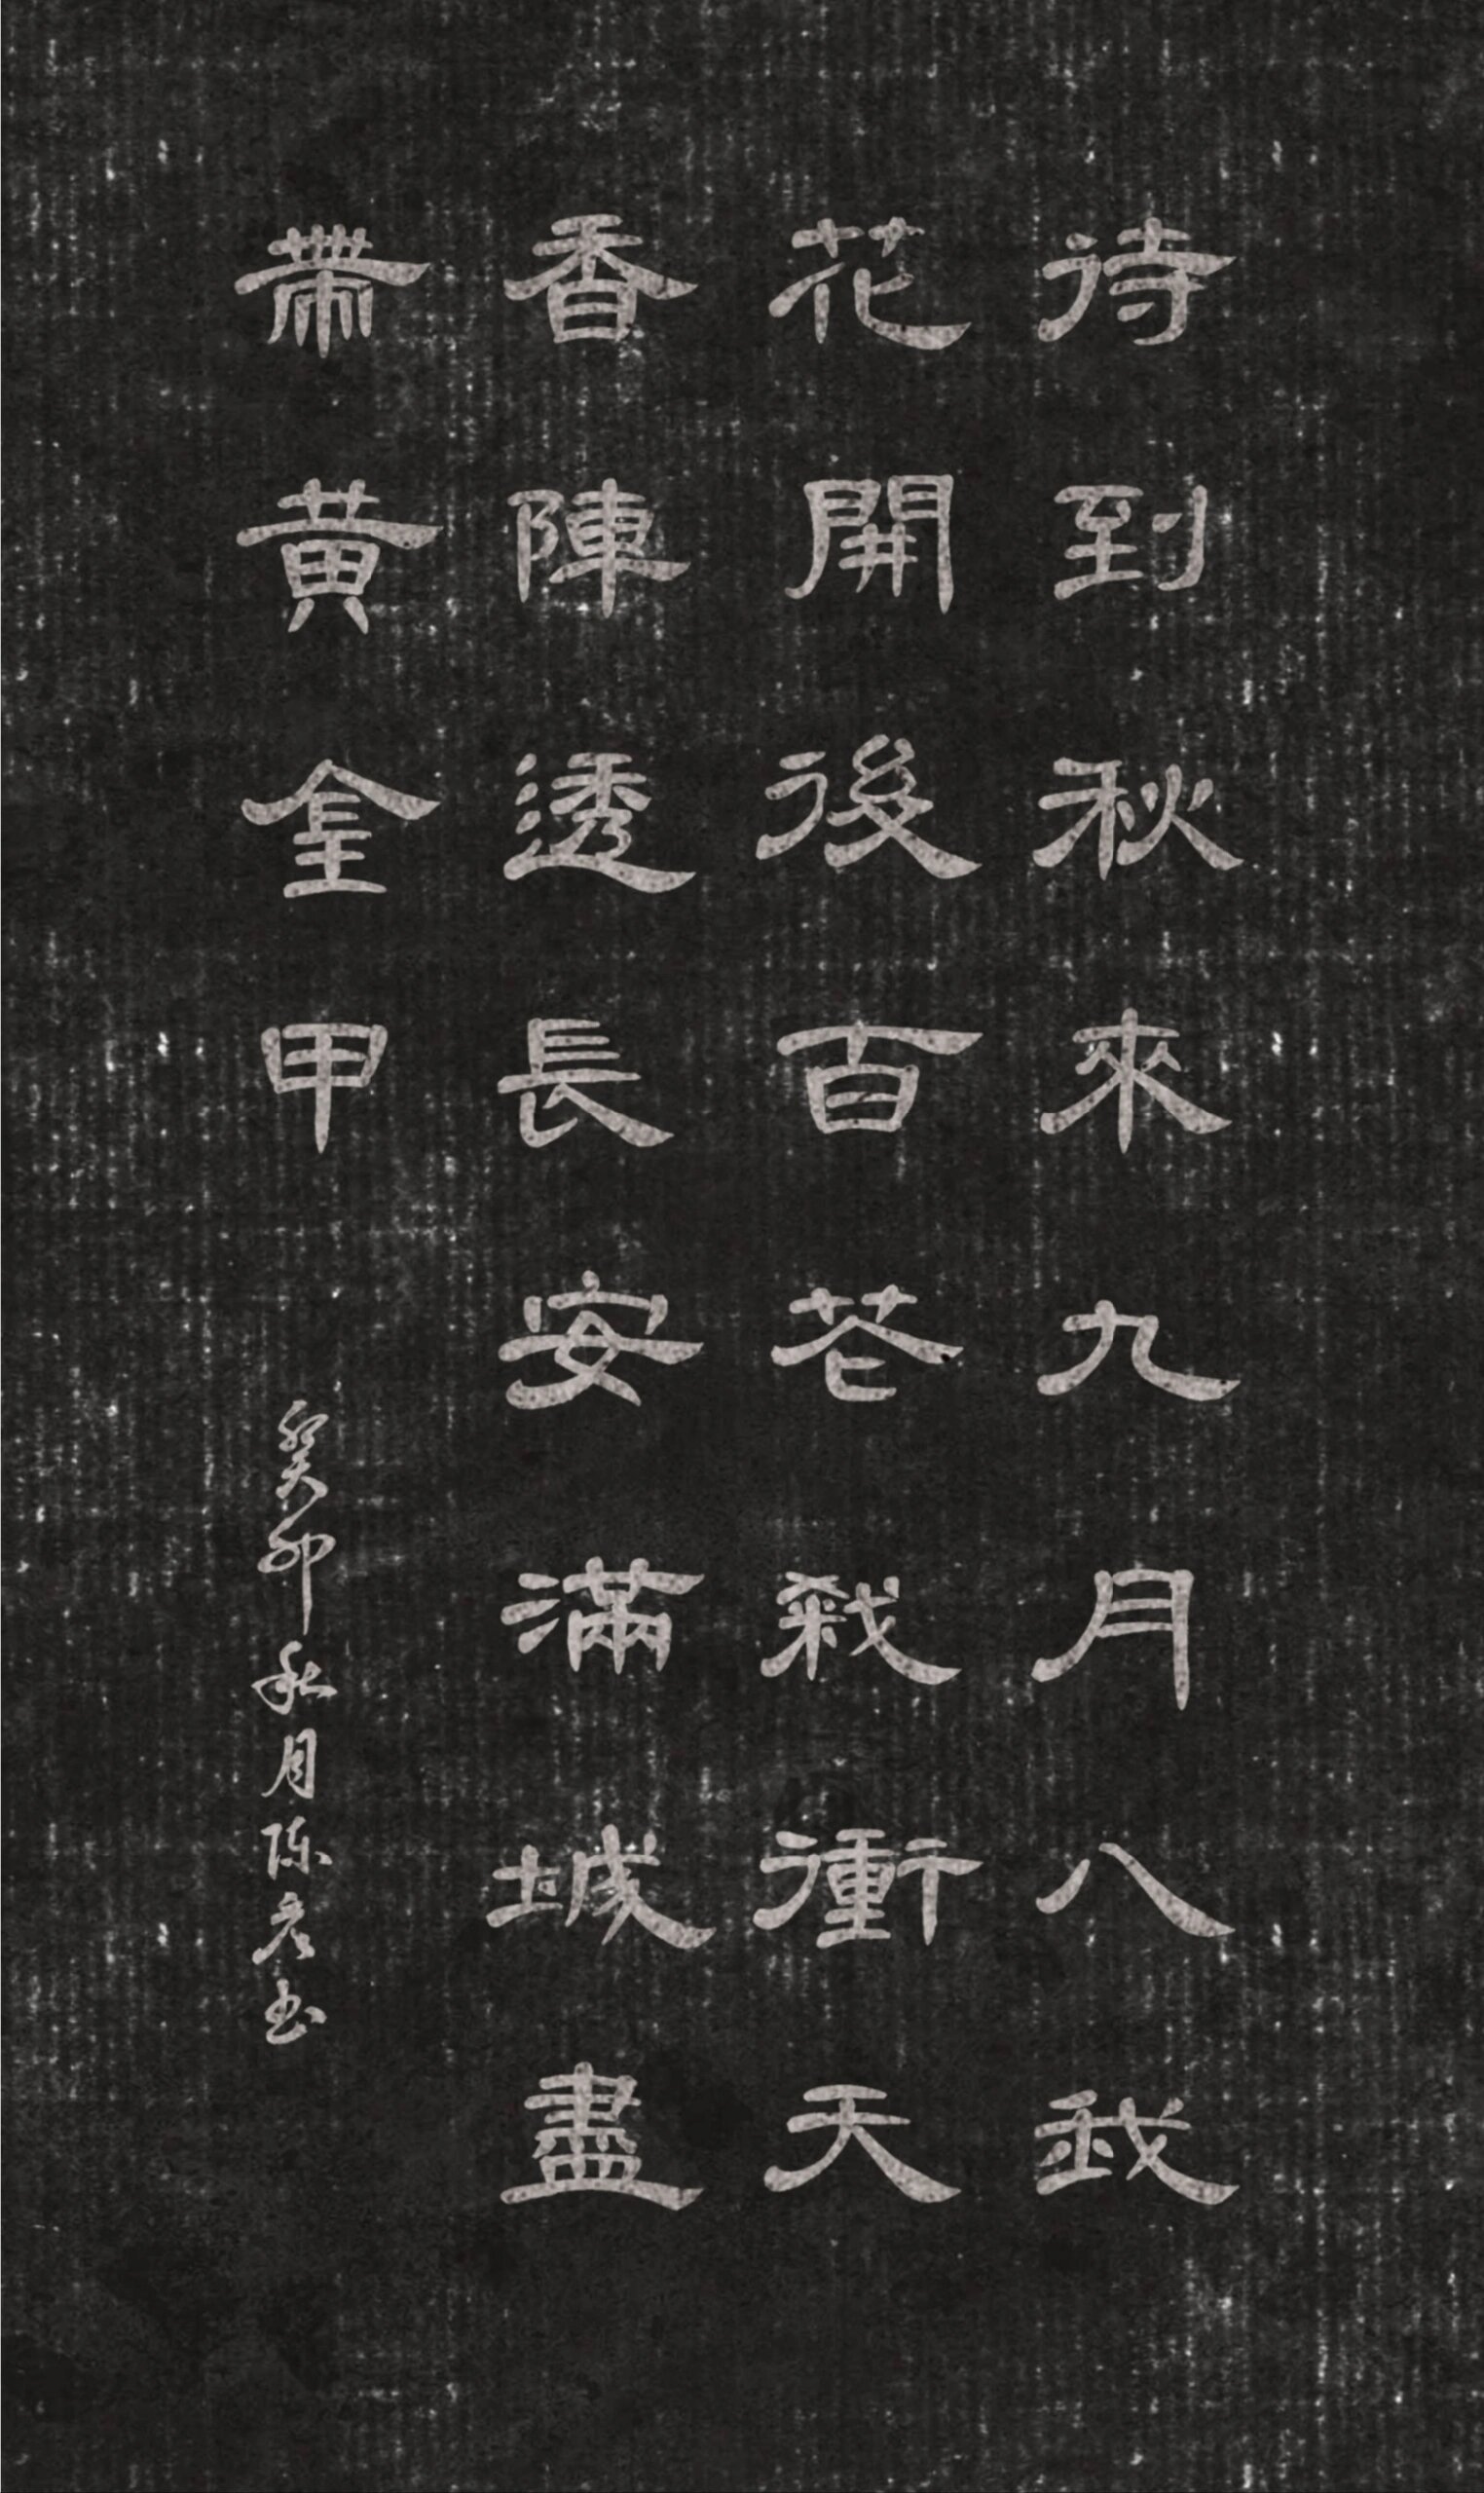 待到秋來九月八我
花開後百花殺衝天
香陣透長安滿城盡
帶黃金甲
癸卯秋月陈彥书